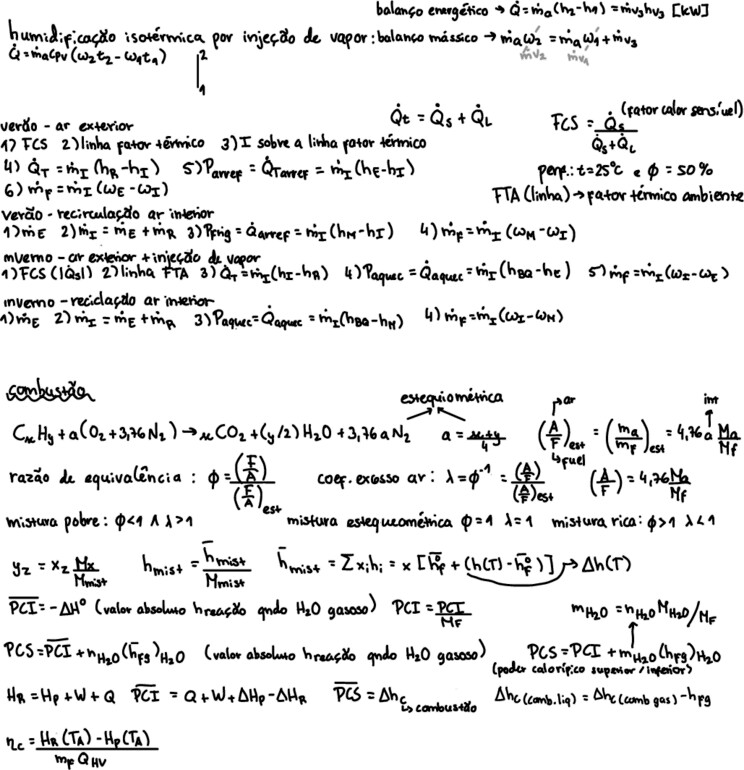 balanço energético → Q̇ = ṁa(h2-h1) = ṁv3hv3 [kW]
humidificação isotérmica por injeção de vapor: balanço mássico → ṁaω2 = ṁaω1 + ṁv3
ṁv2 ṁv1
Q̇ = ṁaCpv(ω2t2 - ω1t1) 2 1
Q̇t = Q̇s + Q̇L FCS = Q̇s/(Q̇s+Q̇L) (fator calor sensível)
verão - ar exterior
1) FCS 2) linha fator térmico 3) I sobre a linha fator térmico
4) Q̇T = ṁI(hR-hI) 5) Parref = Q̇Tarref = ṁI(hE-hI) perf.: t=25°C e φ = 50%
6) ṁF = ṁI(ωE-ωI) FTA (linha) → fator térmico ambiente
verão - recirculação ar interior
1) ṁE 2) ṁI = ṁE + ṁR 3) Pfrig = Q̇arref = ṁI(hM-hI) 4) ṁF = ṁI(ωM-ωI)
inverno - ar exterior + injeção de vapor
1) FCS (|Qs|) 2) linha FTA 3) Q̇T = ṁI(hI-hR) 4) Paquec = Q̇aquec = ṁI(hBQ-hE) 5) ṁF = ṁI(ωI-ωE)
inverno - reciclação ar interior
1) ṁE 2) ṁI = ṁE + ṁR 3) Paquec = Q̇aquec = ṁI(hBQ-hM) 4) ṁF = ṁI(ωI-ωM)
combustão
estequiométrica ar int
CxHy + a(O2+3,76N2) → xCO2 + (y/2)H2O + 3,76aN2 a = x+y/4 (A/F)est = (ma/mF)est = 4,76a Ma/MF
fuel
razão de equivalência: φ = (F/A)/(F/A)est coef. excesso ar: λ = φ⁻¹ = (A/F)/(A/F)est (A/F) = 4,76 Ma/MF
mistura pobre: φ<1 ∧ λ>1 mistura estequeométrica φ=1 λ=1 mistura rica: φ>1 λ<1
yz = xz Mx/Mmist hmist = h̄mist/Mmist h̄mist = Σxihi = x[h̄f° + (h(T) - h̄f°)] → Δh(T)
P̅C̅I̅ = -ΔH° (valor absoluto hreação qndo H2O gasoso) PCI = P̅C̅I̅/MF mH2O = nH2O MH2O/MF
PCS = P̅C̅I̅ + nH2O(h̄fg)H2O (valor absoluto hreação qndo H2O gasoso) PCS = PCI + mH2O(hfg)H2O
(poder calorífico superior/inferior)
HR = HP + W + Q P̅C̅I̅ = Q + W + ΔHP - ΔHR P̅C̅S̅ = Δhc ↳ combustão Δhc(comb.liq) = Δhc(comb gas) - hfg
ηc = HR(TA) - HP(TA)/mF QHV